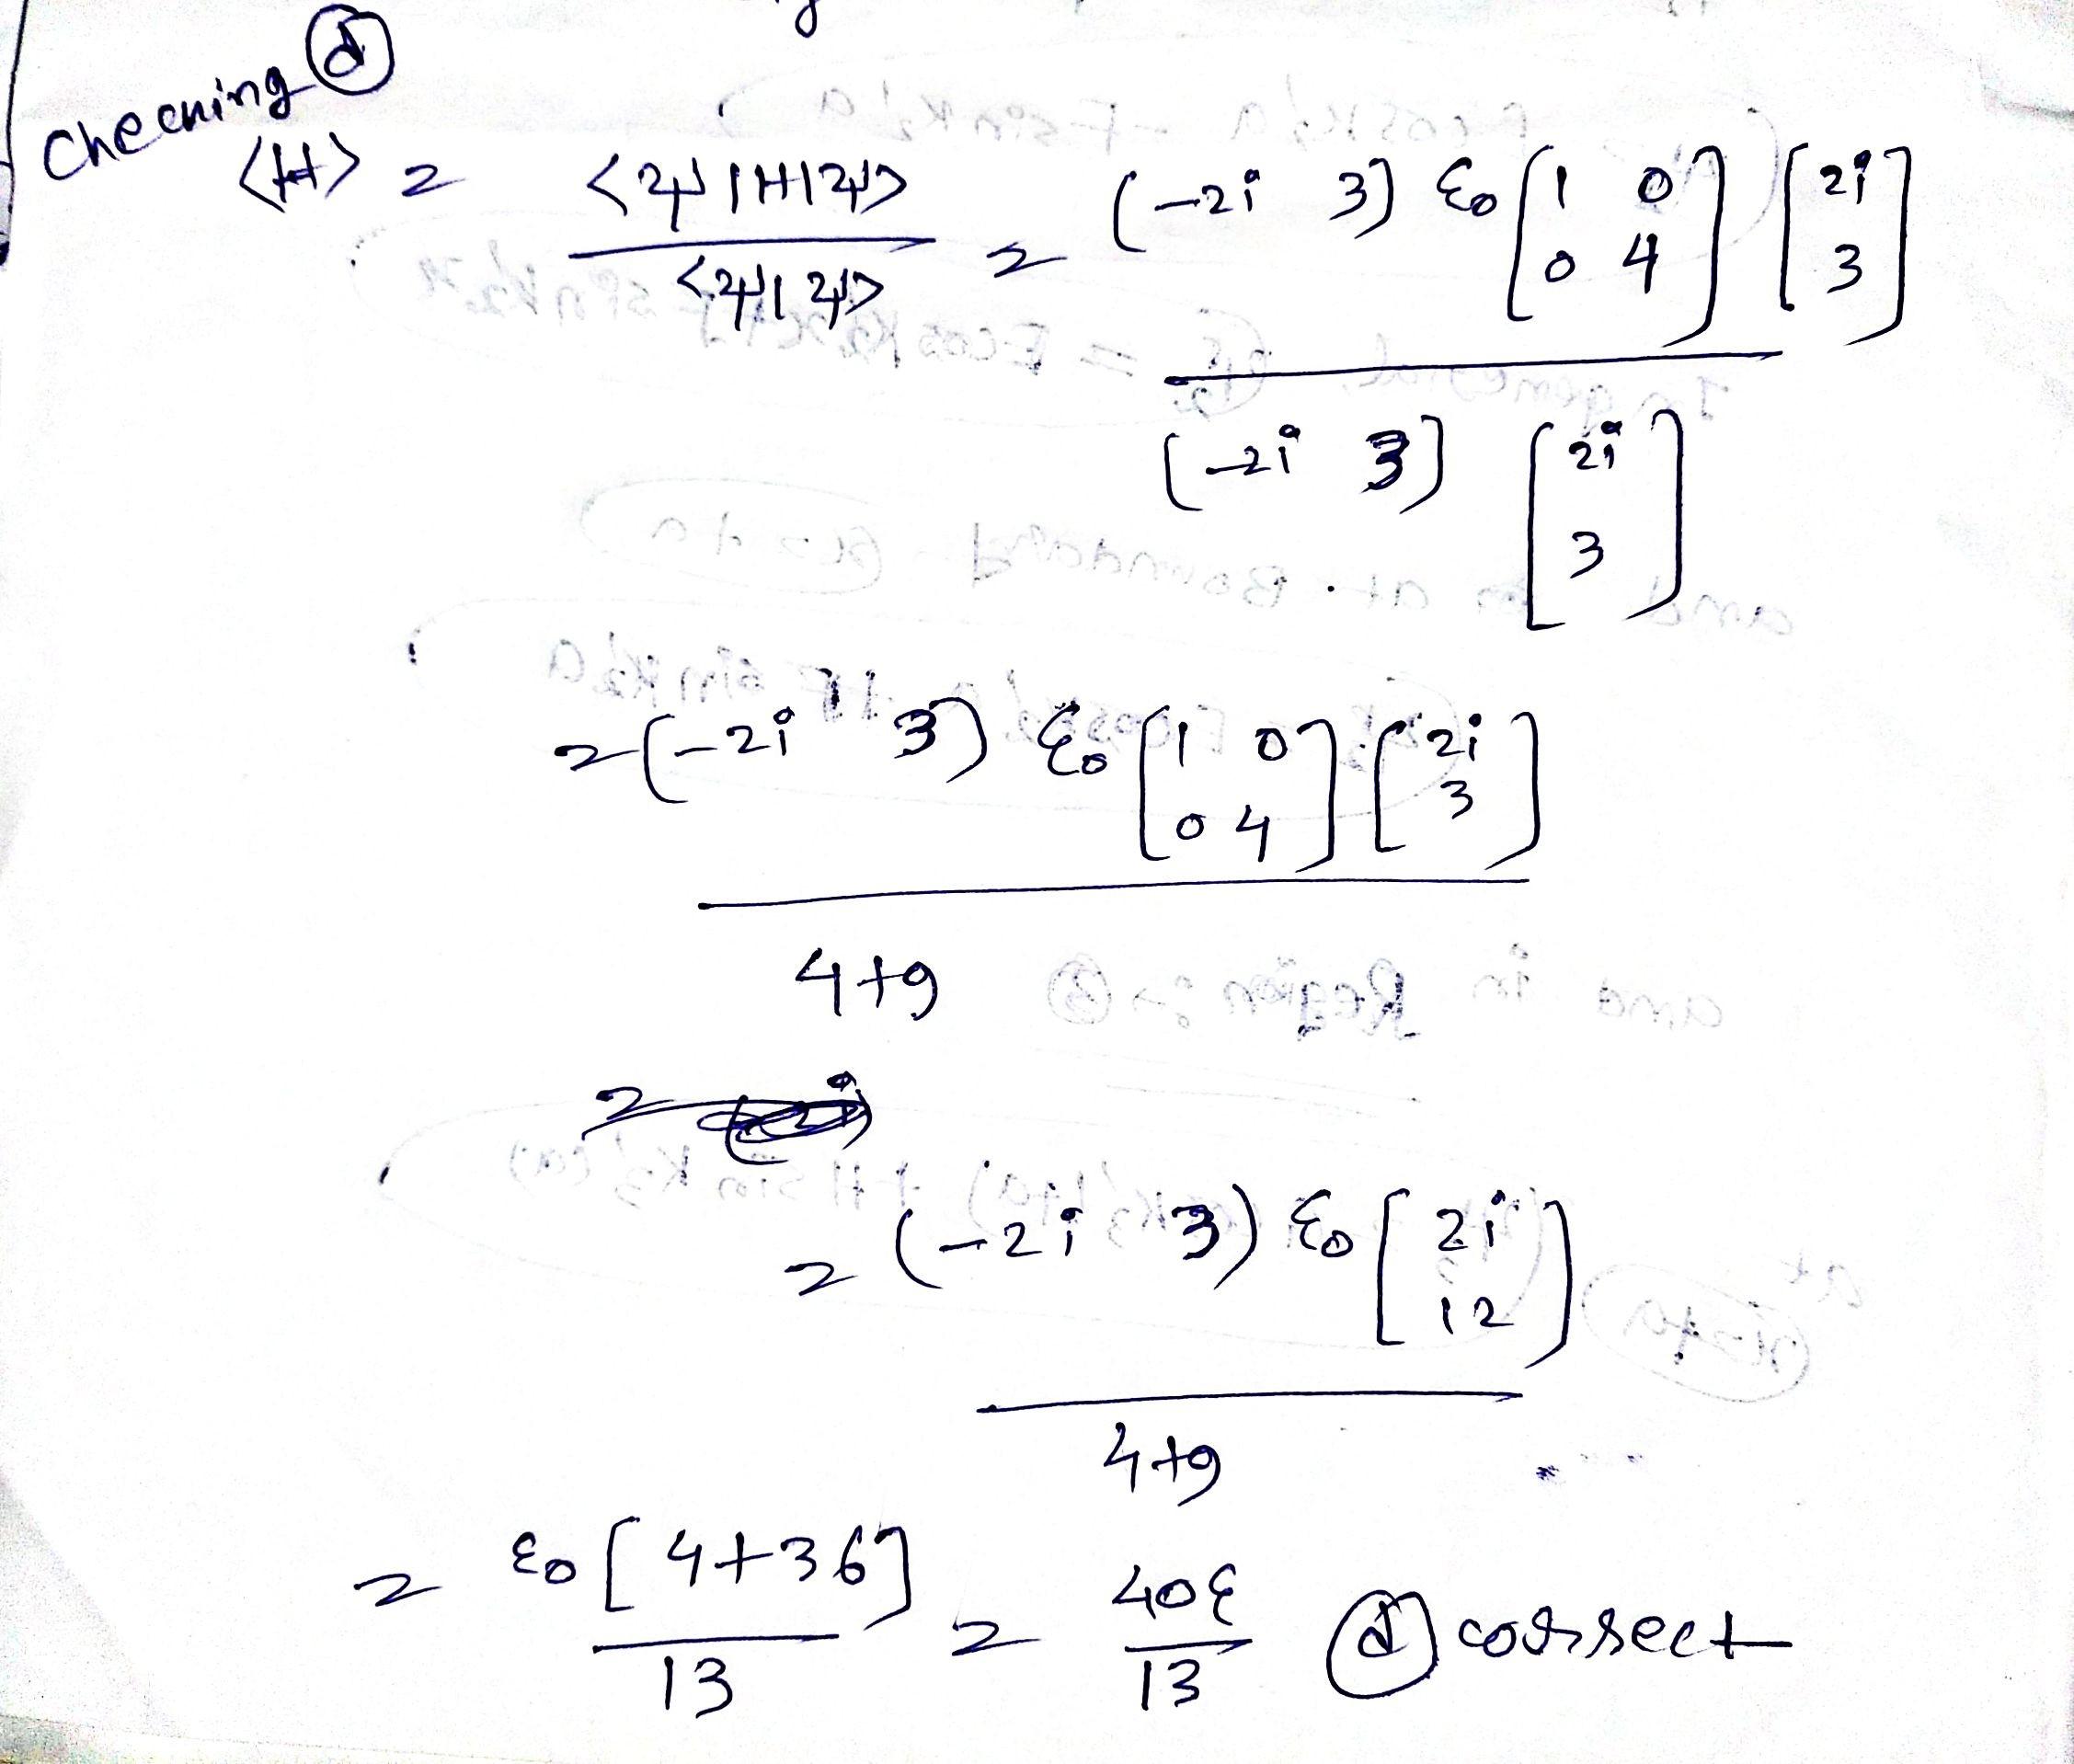 Checking ⓓ
⟨H⟩ = ⟨ψ|H|ψ⟩ / ⟨ψ|ψ⟩ = (-2i 3) ε₀ [1 0; 0 4] [2i; 3] / (-2i 3) [2i; 3]
= (-2i 3) ε₀ [1 0; 0 4] [2i; 3] / 4+9
= (-2i 3) ε₀ [2i; 12] / 4+9
= ε₀ [4+36] / 13 = 40ε / 13 ⓓ correct